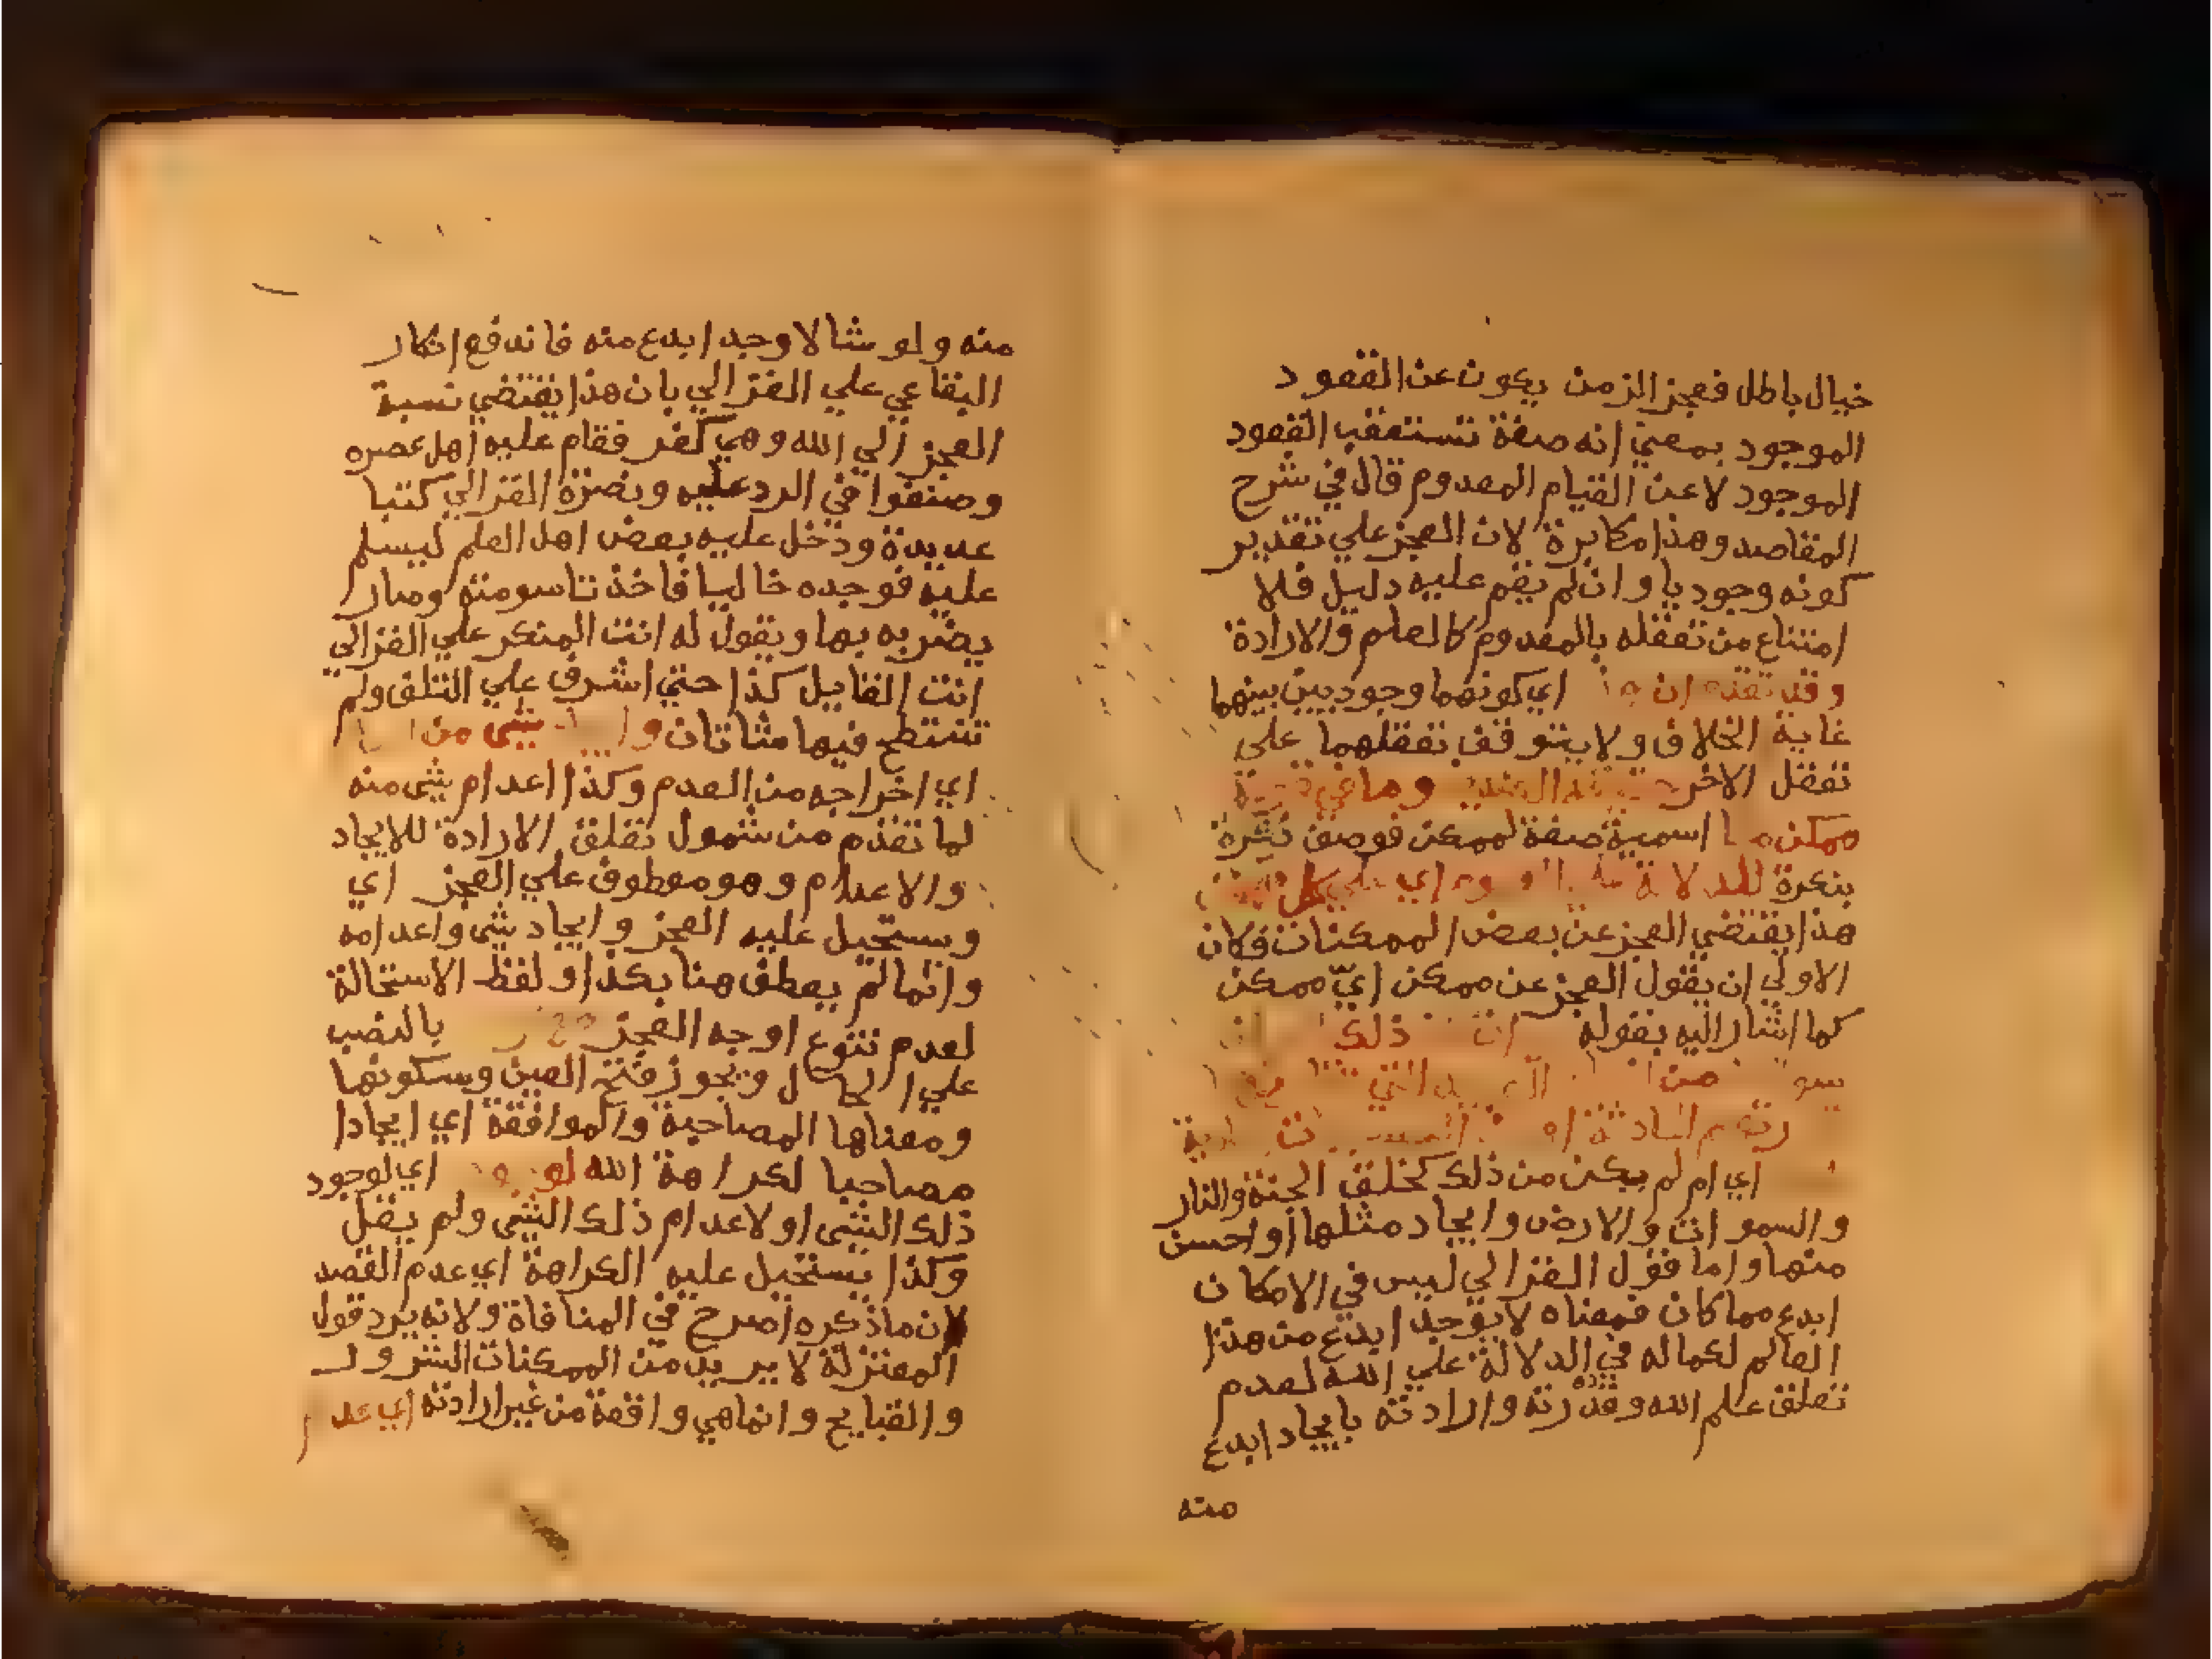 خيال باطل فعجز الزمن يكون عن القعود
الموجود بمعني انه صفة تستعقب القعود
الموجود لا عن القيام المعدوم قال في شرح
المقاصد وهذا مكابرة لان العجز علي تقدير
كونه وجوديا وان لم يقم عليه دليل فلا
امتناع من تعلقه بالمعدوم كالعلم والارادة
وقد تقدم ان اي كونهما وجوديين بينهما
غاية الخلاف ولا يتوقف تعقلهما علي
تعقل الاخر وما في
ممكن ما اسمية صفة لممكن فوصف نكرة
بنكرة للدلالة اي علي كل
هذا يقتضي العجز عن بعض الممكنات فكان
الاولي ان يقول العجز عن ممكن ايّ ممكن
كما اشار اليه بقوله ذلك
من
اي ام لم يكن من ذلك كخلق الجنة والنار
والسموات والارض وايجاد مثلها او احسن
منها واما قول الغزالي ليس في الامكان
ابدع مما كان فمعناه لا يوجد ابدع من هذا
العالم لكماله في الدلالة علي الله لعدم
تعلق علم الله وقدرته وارادته بايجاد ابدع
منه
منه ولو شا لاوجد ابدع منه فاندفع انكار
البقاعي علي الغزالي بان هذا يقتضي نسبة
العجز الي الله وهي كفر فقام عليه اهل عصره
وصنفوا في الرد عليه ونصرة الغزالي كتبا
عديدة ودخل عليه بعض اهل العلم ليسلم
عليه فوجده خاليا فاخذ تاسومته وصار
يضربه بها ويقول له انت المنكر علي الغزالي
انت القايل كذا حتي اشرف علي التلف ولم
تنتطح فيها شاتان شي من
اي اخراجه من العدم وكذا اعدام شي منه
لما تقدم من شمول تعلق الارادة للايجاد
والاعدام وهو معطوف علي العجز اي
ويستحيل عليه العجز وايجاد شي واعدامه
وانما لم يعطف هنا بكذا ولفظ الاستحالة
لعدم تنوع اوجه العجز بالنصب
علي الحال ويجوز فتح العين وسكونها
ومعناها المصاحبة والموافقة اي ايجادا
مصاحبا لكراهة الله اي لوجود
ذلك الشي او لاعدام ذلك الشي ولم يقل
وكذا يستحيل عليه الكراهة اي عدم القصد
لان ما ذكره اصرح في المنافاة ولانه يرد قول
المعتزلة لا يريد من الممكنات الشرور
والقبايح وانما هي واقعة من غير ارادته اي عدم